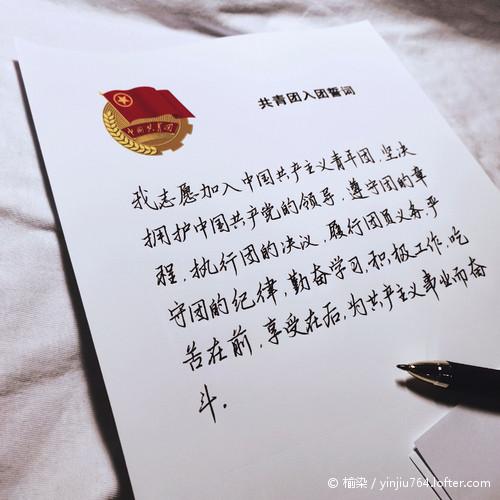 共青团入团誓词
中国共青团
我志愿加入中国共产主义青年团，坚决
拥护中国共产党的领导，遵守团的章
程，执行团的决议，履行团员义务，严
守团的纪律，勤奋学习，积极工作，吃
苦在前，享受在后，为共产主义事业而奋
斗。
© 楠染 / yinjiu764.lofter.com